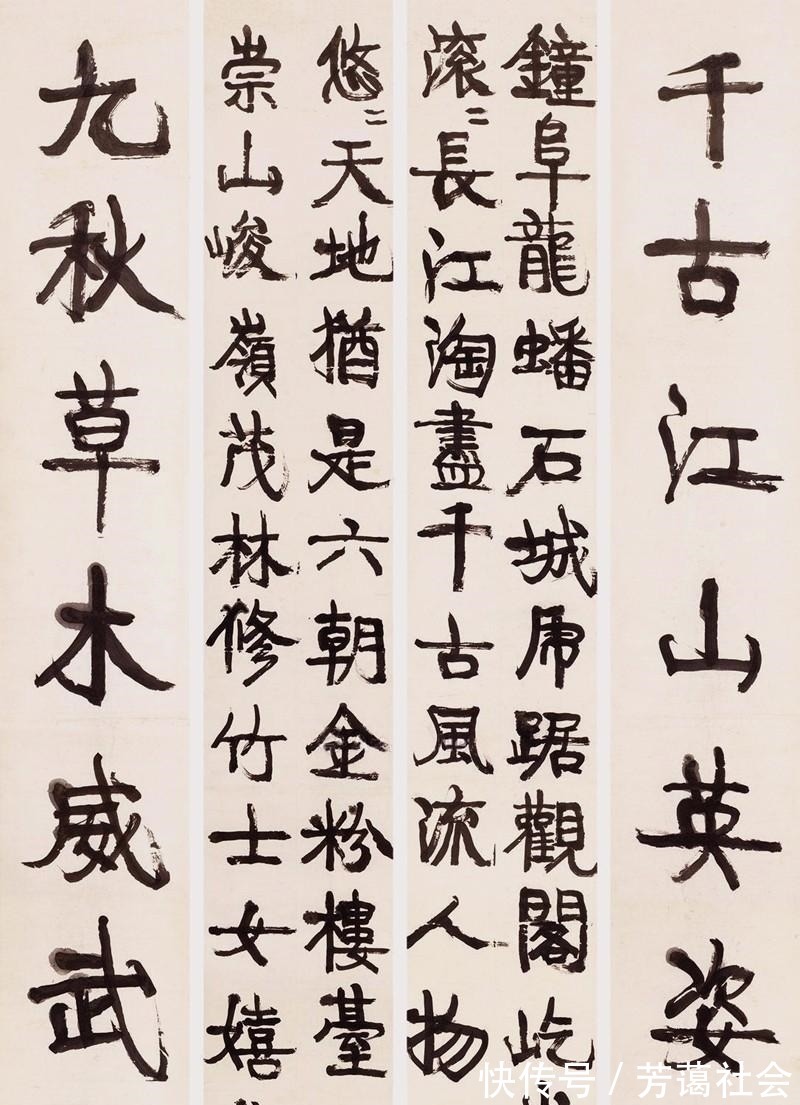 千古江山英姿
鐘阜龍蟠石城虎踞觀閣屹
滾〻長江淘盡千古風流人物
悠〻天地猶是六朝金粉樓臺
崇山峻嶺茂林修竹士女嬉
九秋草木威武
快传号 / 芳蔼社会